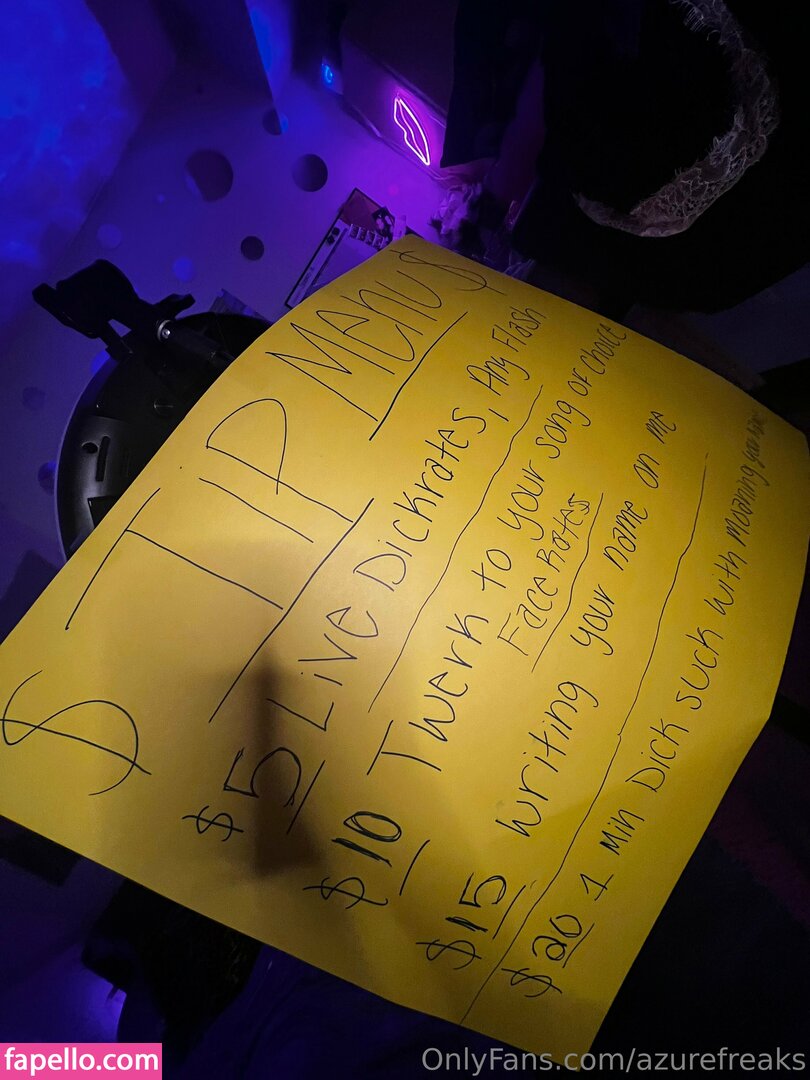 $ TIP MENU $
$5 Live Dickrates, Any Flash
$10 Twerk to your song of choice
Face Rates
$15 writing your name on me
$20 1 Min Dick suck with moaning your name
fapello.com
OnlyFans.com/azurefreaks